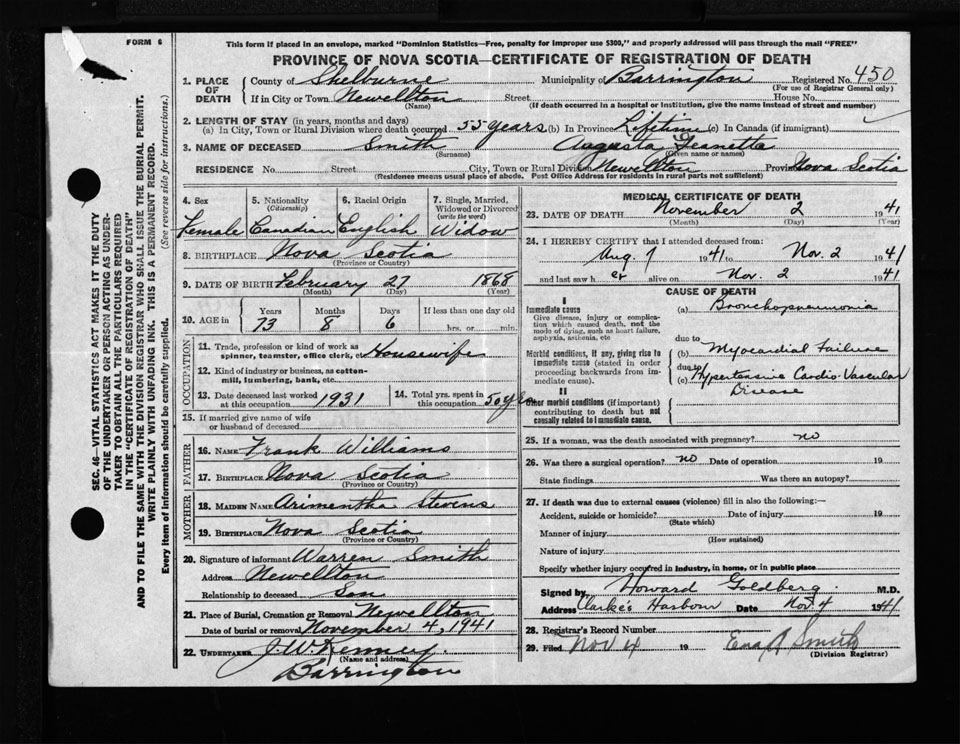 FORM 6
This form if placed in an envelope, marked "Dominion Statistics—Free, penalty for improper use $300," and properly addressed will pass through the mail "FREE"
PROVINCE OF NOVA SCOTIA—CERTIFICATE OF REGISTRATION OF DEATH
1. PLACE OF DEATH County of Shelburne Municipality of Barrington Registered No. 450
(For use of Registrar General only)
If in City or Town Newellton Street House No.
(Name) (If death occurred in a hospital or institution, give the name instead of street and number)
2. LENGTH OF STAY (in years, months and days)
(a) In City, Town or Rural Division where death occurred 55 years (b) In Province Lifetime (c) In Canada (if immigrant)
3. NAME OF DECEASED Smith Augusta Jeanetta
(Surname) (Given name or names)
RESIDENCE No. Street City, Town or Rural Division Newellton Province Nova Scotia
(Residence means usual place of abode. Post Office Address for residents in rural parts not sufficient)
4. Sex Female
5. Nationality (Citizenship) Canadian
6. Racial Origin English
7. Single, Married, Widowed or Divorced (write the word) Widow
8. BIRTHPLACE Nova Scotia
(Province or Country)
9. DATE OF BIRTH February 27 1868
(Month) (Day) (Year)
10. AGE in Years Months Days If less than one day old
73 8 6 hrs. or min.
OCCUPATION
11. Trade, profession or kind of work as spinner, teamster, office clerk, etc. Housewife
12. Kind of industry or business, as cotton-mill, lumbering, bank, etc.
13. Date deceased last worked at this occupation 1931
14. Total yrs. spent in this occupation 50 yrs
15. If married give name of wife or husband of deceased
FATHER
16. NAME Frank Williams
17. BIRTHPLACE Nova Scotia
(Province or Country)
MOTHER
18. MAIDEN NAME Arimentha Stevens
19. BIRTHPLACE Nova Scotia
(Province or Country)
20. Signature of informant Warren Smith
Address Newellton
Relationship to deceased Son
21. Place of Burial, Cremation or Removal Newellton
Date of burial or removal November 4, 1941
22. UNDERTAKER J. W. Kenney
(Name and address)
Barrington
MEDICAL CERTIFICATE OF DEATH
23. DATE OF DEATH November 2 1941
(Month) (Day) (Year)
24. I HEREBY CERTIFY that I attended deceased from:
Aug. 7 1941 to Nov. 2 1941
and last saw her alive on Nov. 2 1941
CAUSE OF DEATH
I
Immediate cause
Give disease, injury or complication which caused death, not the mode of dying, such as heart failure, asphyxia, asthenia, etc
(a) Bronchopneumonia
due to
Morbid conditions, if any, giving rise to immediate cause (stated in order proceeding backwards from immediate cause).
(b) Myocardial Failure
due to
(c) Hypertensive Cardio-Vascular
Disease
II
Other morbid conditions (if important) contributing to death but not causally related to immediate cause.
25. If a woman, was the death associated with pregnancy? no
26. Was there a surgical operation? no Date of operation 19
State findings Was there an autopsy?
27. If death was due to external causes (violence) fill in also the following:—
Accident, suicide or homicide? Date of injury 19
(State which)
Manner of injury
(How sustained)
Nature of injury
Specify whether injury occurred in industry, in home, or in public place
Signed by Howard Goldberg M.D.
Address Clarke's Harbour Date Nov. 4 1941
28. Registrar's Record Number
29. Filed Nov 19 Smith
(Division Registrar)
SEC. 46—VITAL STATISTICS ACT MAKES IT THE DUTY
OF THE UNDERTAKER OR PERSON ACTING AS UNDER-
TAKER TO OBTAIN ALL THE PARTICULARS REQUIRED
IN THE "CERTIFICATE OF REGISTRATION OF DEATH"
AND TO FILE THE SAME WITH THE DIVISION REGISTRAR WHO SHALL ISSUE THE BURIAL PERMIT.
WRITE PLAINLY WITH UNFADING INK. THIS IS A PERMANENT RECORD.
Every item of information should be carefully supplied. (See reverse side for instructions.)